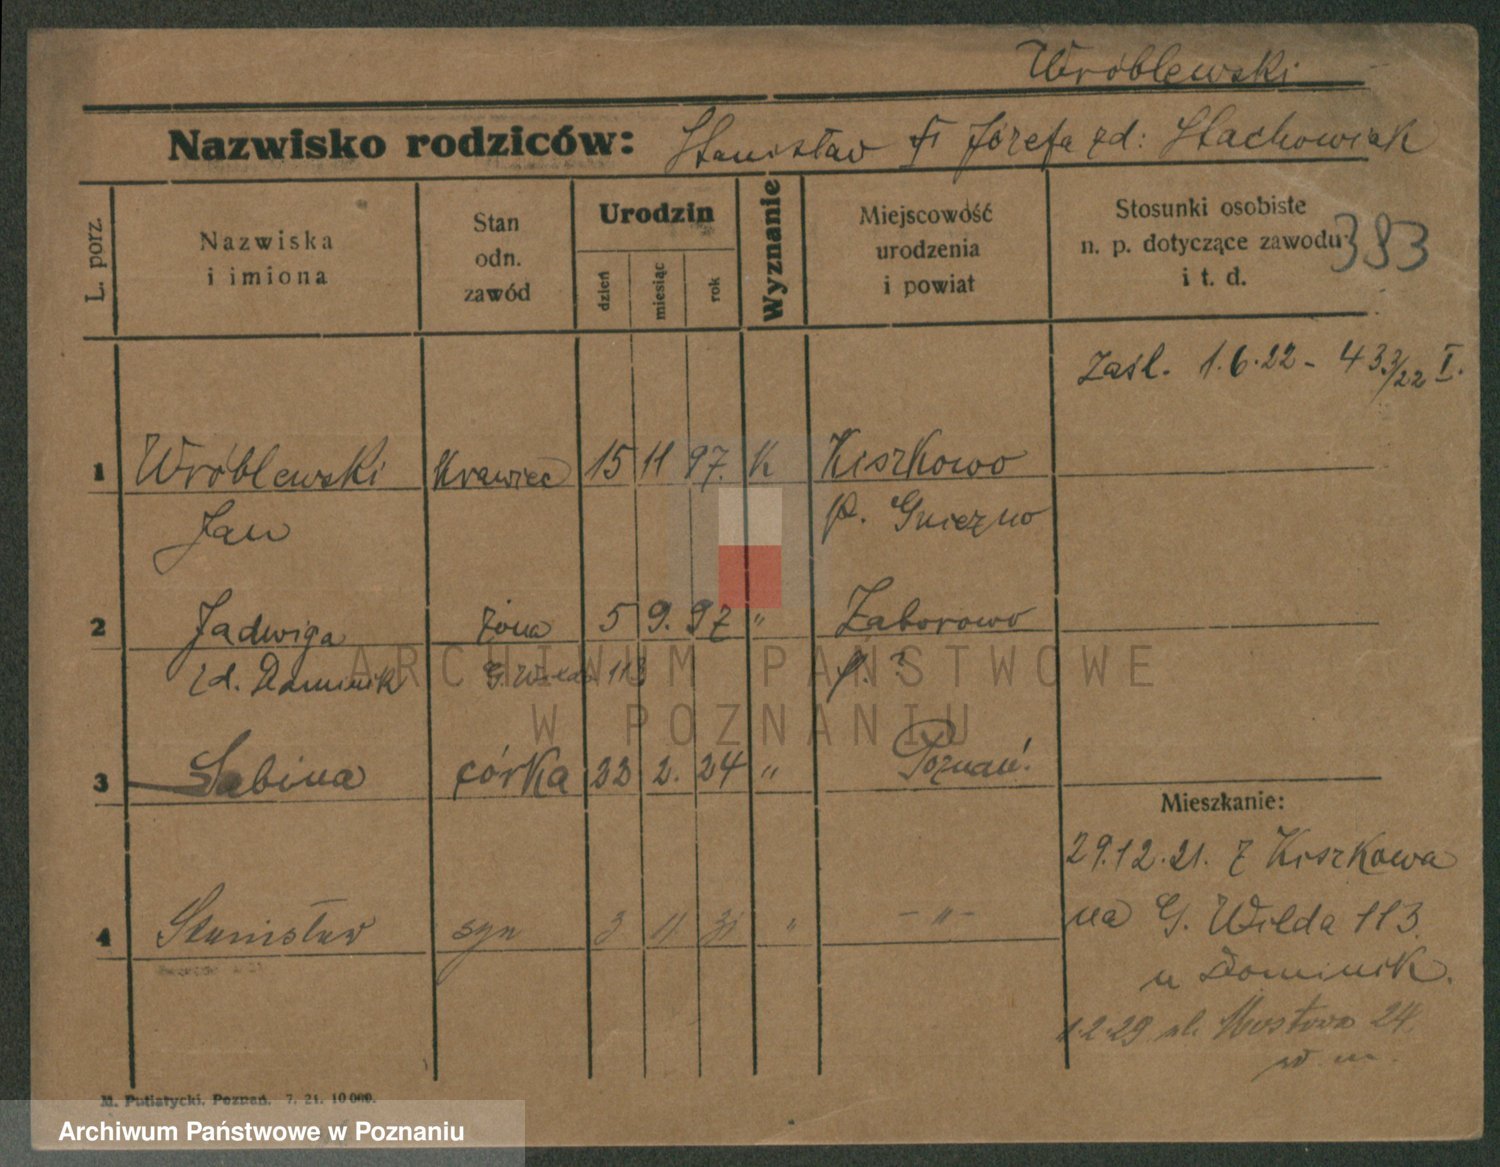 Wróblewski
Nazwisko rodziców: Stanisław Józefa zd: Stachowiak
L. porz.
Nazwiska
i imiona
Stan
odn.
zawód
Urodzin
dzień
miesiąc
rok
Wyznanie
Miejscowość
urodzenia
i powiat
Stosunki osobiste
n. p. dotyczące zawodu
i t. d.
383
zaśl. 1.6.22 - 433/22 I.
1 Wróblewski Krawiec 15 11 97. K Kiszkowo
Jan p. Gniezno
2 Jadwiga żona 5 9. 97 " Zaborowo
zd. Dominik G. Wilda 113 p. ?
3 Sabina córka 22 2. 24 " Poznań.
Mieszkanie:
29.12.21. z Kiszkowa
na G. Wilda 113.
u Dominik.
4 Stanisław syn 3 11 31 " - " -
1.2.29 ul. Mostowa 24.
w. m.
M. Putiatycki, Poznań. 7. 21. 10 000.
ARCHIWUM PAŃSTWOWE
W POZNANIU
Archiwum Państwowe w Poznaniu